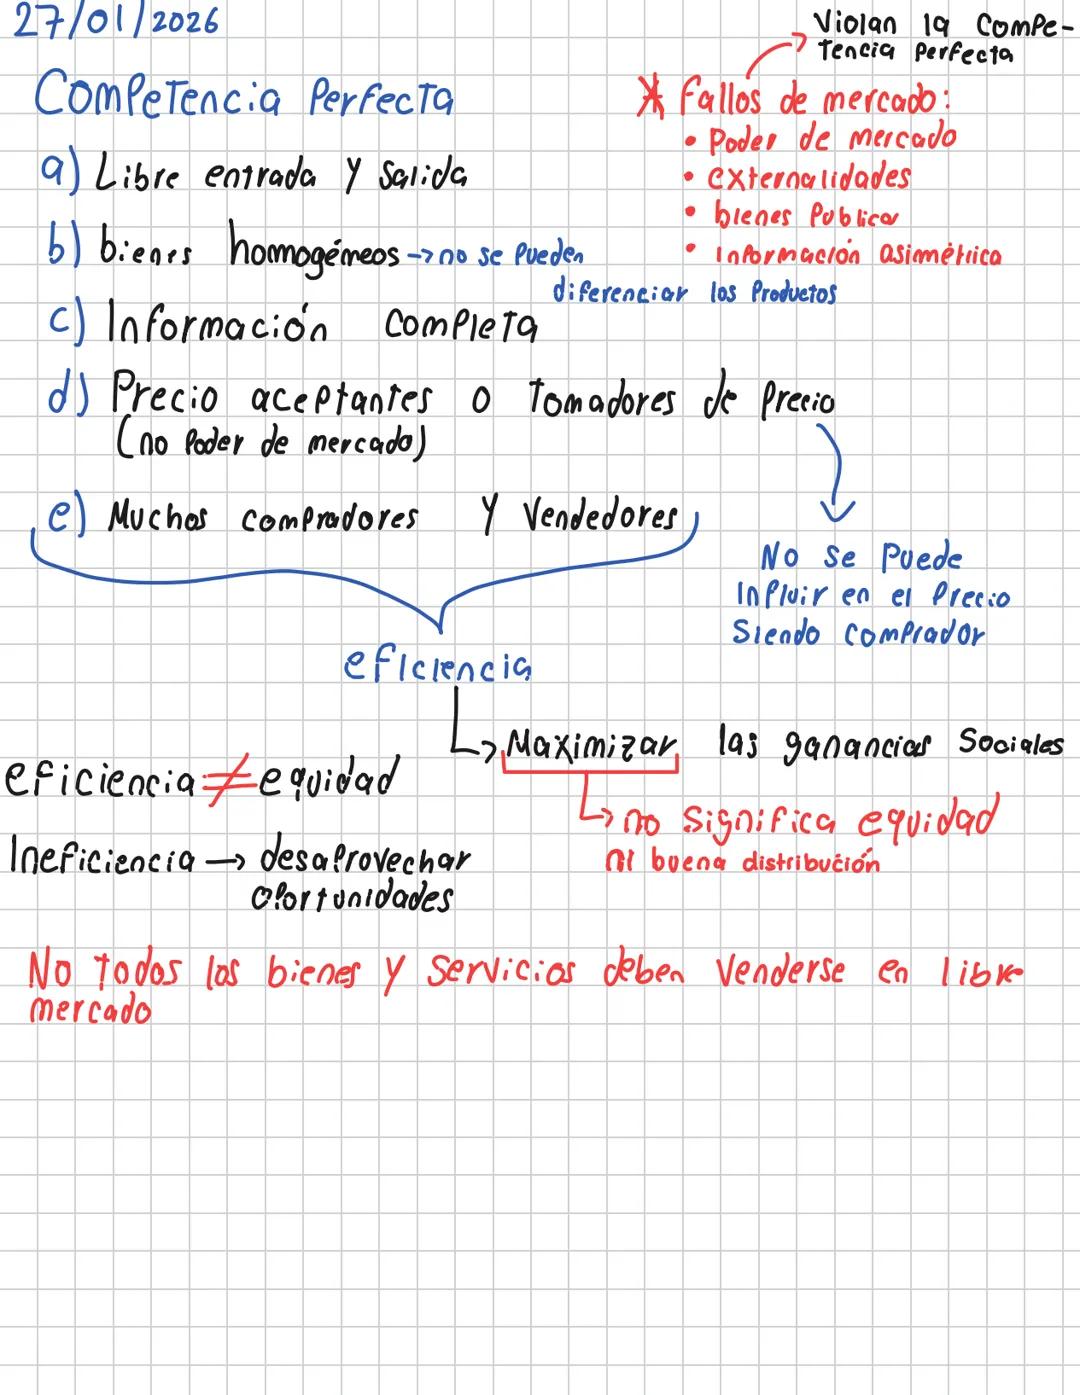 27/01/2026
Violan la Compe-
tencia Perfecta
Competencia Perfecta
* Fallos de mercado:
• Poder de mercado
• externalidades
• bienes Publicos
• Información asimétrica
a) Libre entrada y Salida
b) bienes homogéneos → no se Pueden
diferenciar los Productos
c) Información Completa
d) Precio aceptantes o Tomadores de Precio
(no Poder de mercado)
e) Muchos compradores y Vendedores
No se Puede
Influir en el Precio
Siendo comprador
eficiencia
Maximizar las ganancias Sociales
eficiencia ≠ equidad
no Significa equidad
ni buena distribución
Ineficiencia → desaprovechar
oportunidades
No todos los bienes y Servicios deben Venderse en libre
mercado